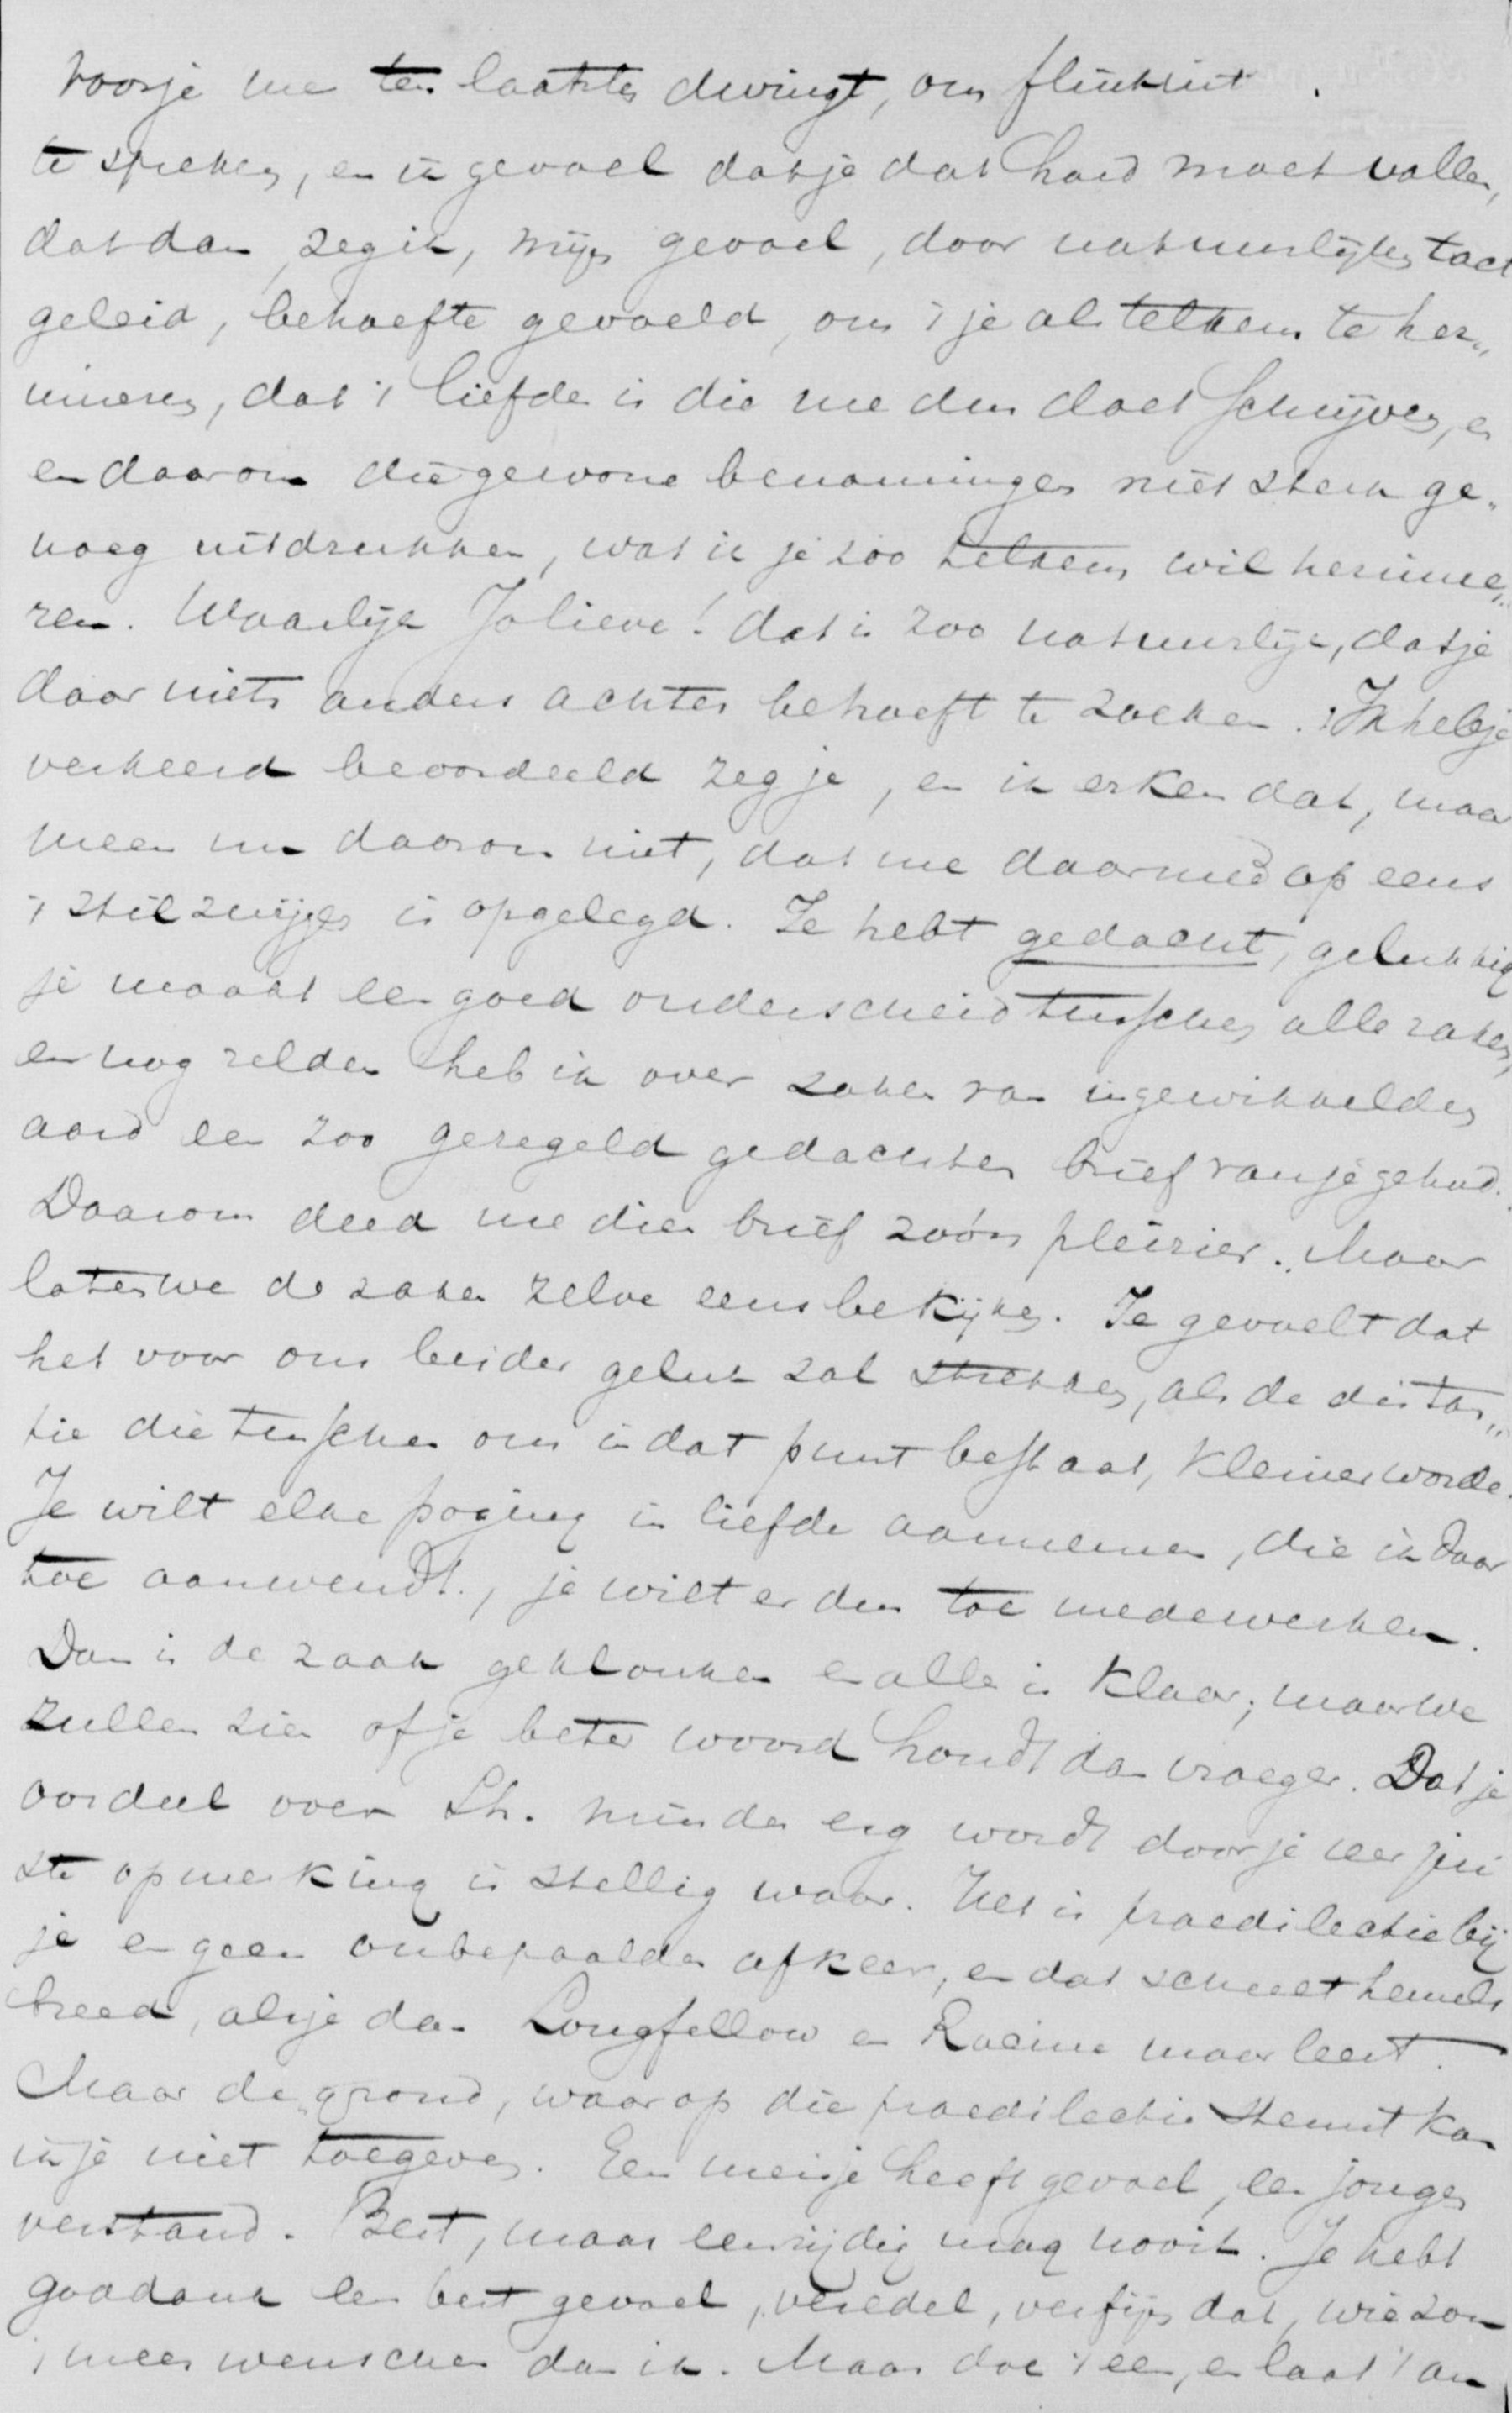 voorje me ten laatste dwingt, om flinkuit
te spreken, en ik gevoel datje dat hard moet vallen,
dat dan, zeg ik, mijn gevoel, door natuurlijken tact
geleid, behoefte gevoeld, om 't je al telkens te her„
inneren, dat 't liefde is die me dus doet schrijven, en
en daarom die gewone benamingen niet sterk ge„
noeg uitdrukken, wat ik je zoo telkens wil herinne„
ren. Waarlijk Jolieve! dat is zoo natuurlijk, datje
daar niets anders achter behoeft te zoeken. Ik hebje
verkeerd beoordeeld zeg je, en ik erken dat, maar
meen nu daarom niet, dat me daarmeê op eens
't stilzwijgen is opgelegd. Je hebt gedacht, gelukkig
je maakt een goed onderscheid tusschen alle zaken,
en nog zelden heb ik over zaken van ingewikkelden
aard een zoo geregeld gedachten brief van je gehad.
Daarom deed me dien brief zóón pleizier. Maar
laten we de zaken zelve eens bekijken. Je gevoelt dat
het voor ons beider geluk zal strekken, als de distan„
tie die tusschen ons in dat punt bestaat, kleiner worde.
Je wilt elke poging in liefde aannemen, die ik daar
toe aanwendt, je wilt er dus toe medewerken.
Dan is de zaak geklonken en alles is klaar; maar we
zullen zien of je beter woord houdt dan vroeger. Dat je
oordeel over Sh. minder erg wordt door je zeer jui
ste opmerking is stellig waar. Het is praedilectie bij
je en geen onbepaalde afkeer, en dat scheelt hemels
breed, als je dan Longfellow en Racine maar leest.
Maar de grond, waarop die praedilectie steunt kan
ik je niet toegeven. Een meisje heeft gevoel, een jongen
verstand. Best, maar eenzijdig mag nooit. Je hebt
goddank een best gevoel, veredel, verfijn dat, wie zou
't meer wenschen dan ik. Maar doe 't een, en laat 't an